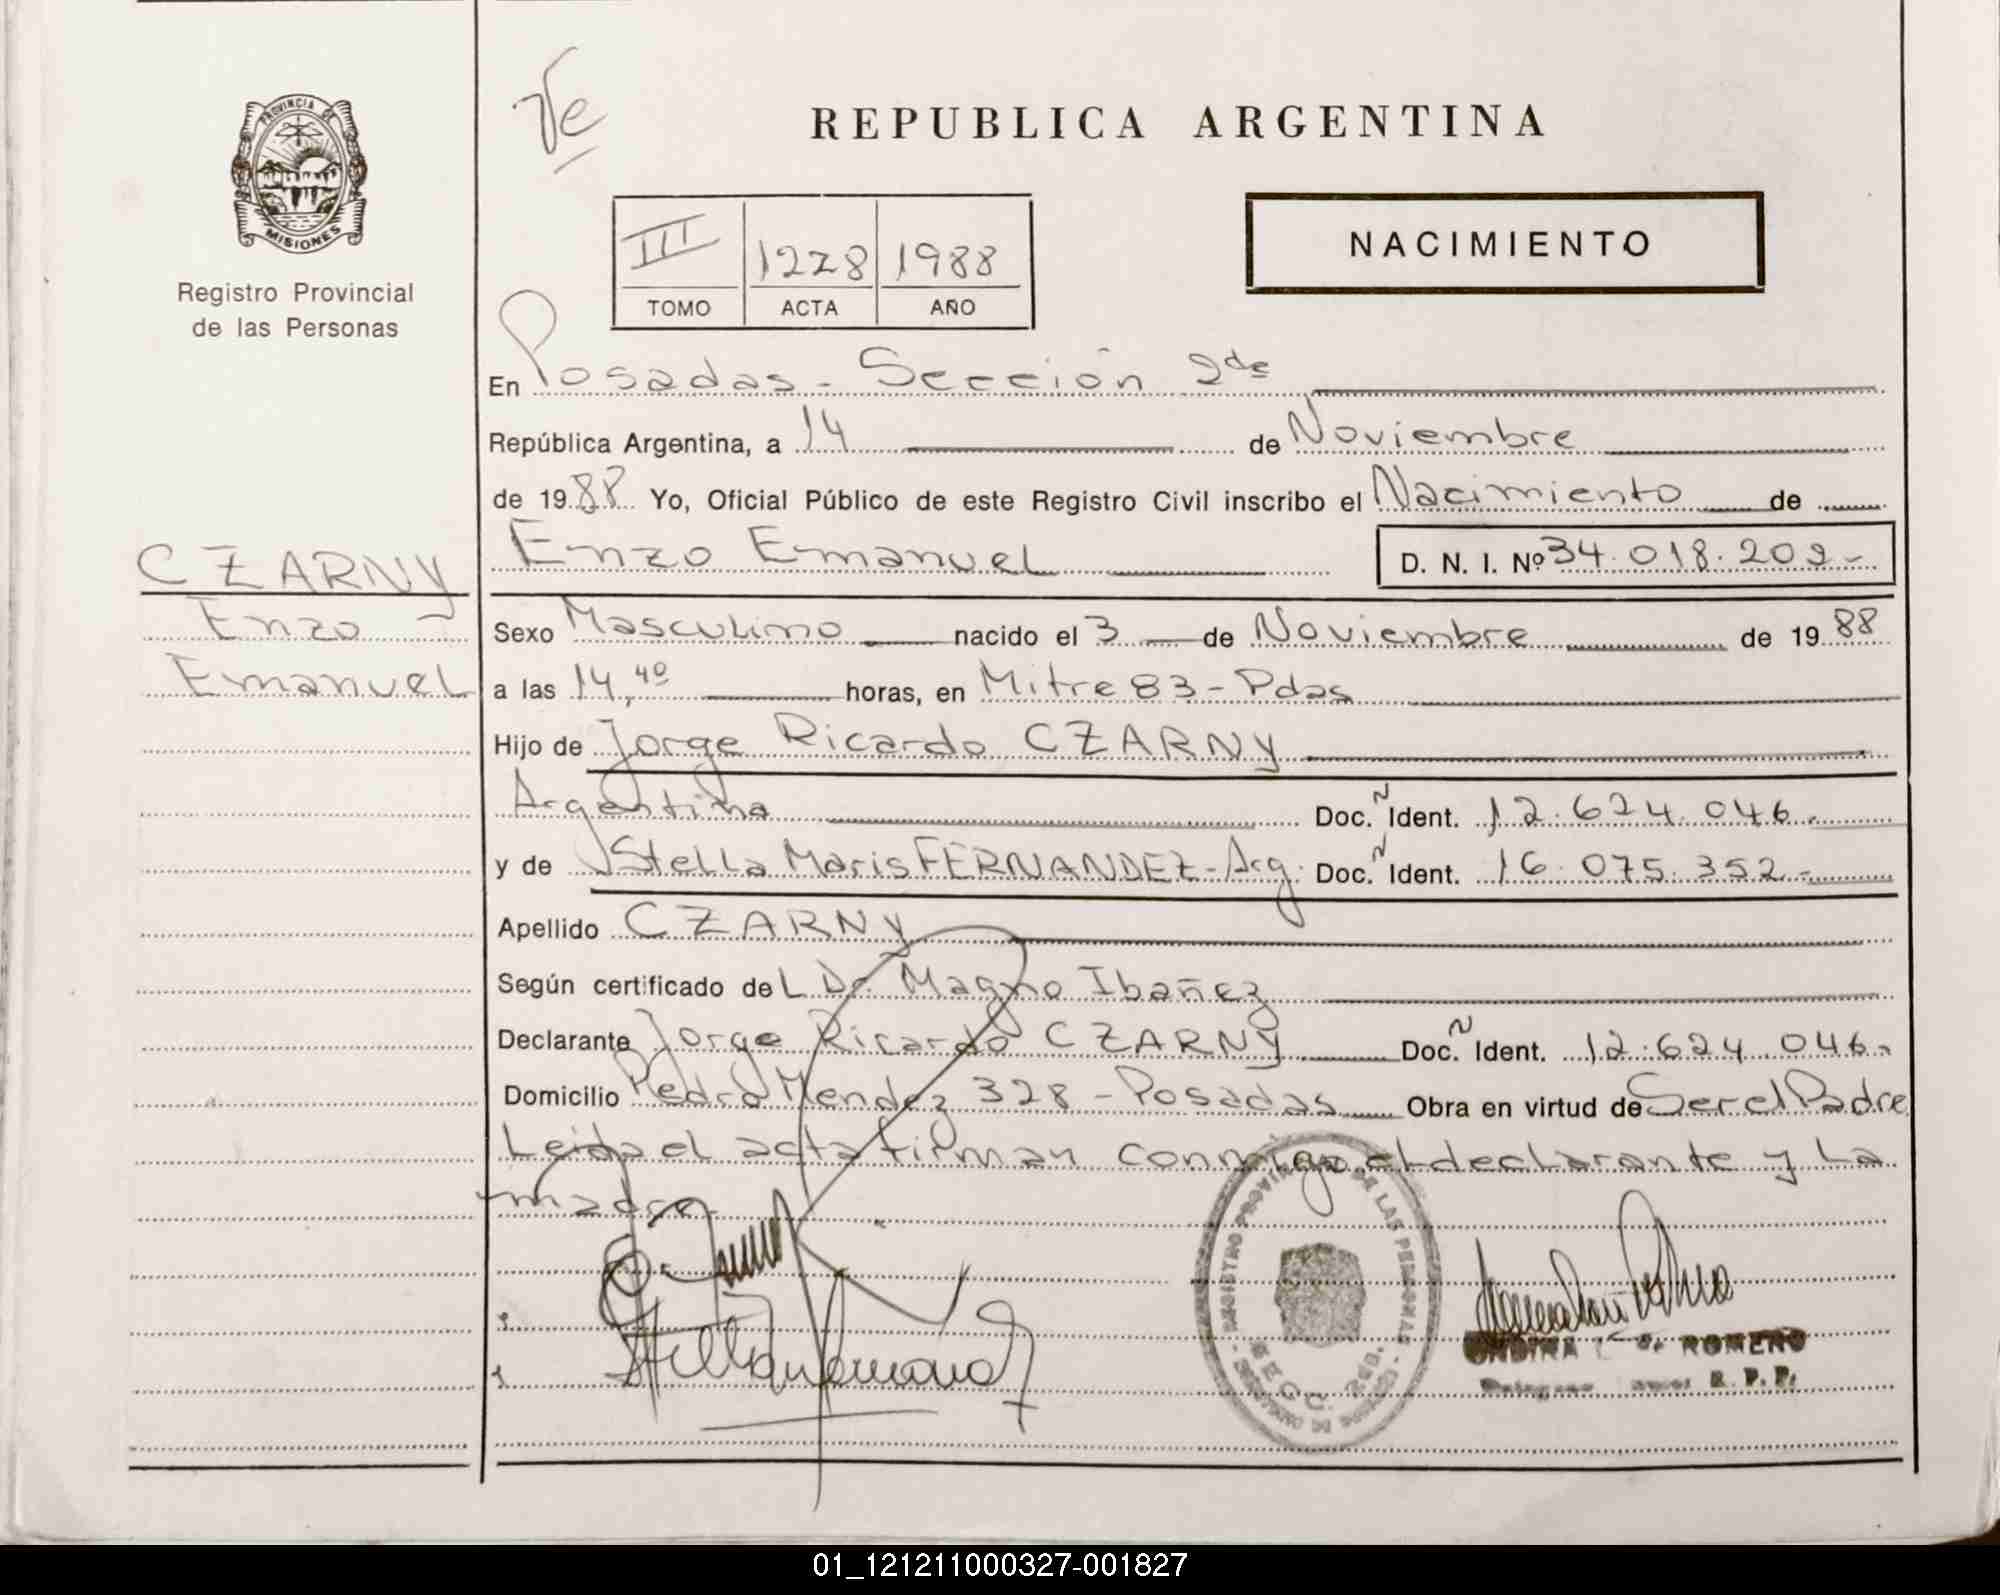 Ve
REPUBLICA ARGENTINA
PROVINCIA DE
MISIONES
Registro Provincial
de las Personas
III 1278 1988
TOMO ACTA AÑO
NACIMIENTO
En Posadas - Sección 2da
República Argentina, a 14 de Noviembre
de 1988 Yo, Oficial Público de este Registro Civil inscribo el Nacimiento de
CZARNY
Enzo
Emanuel
Enzo Emanuel D. N. I. Nº 34.018.202-
Sexo Masculino nacido el 3 de Noviembre de 1988
a las 14,40 horas, en Mitre 83 - Pdas
Hijo de Jorge Ricardo CZARNY
Argentina Doc. Ñ Ident. 12.624.046.
y de Stella Maris FERNANDEZ - Arg. Doc. Ñ Ident. 16.075.352-
Apellido CZARNY
Según certificado del Dr. Magno Ibañez
Declarante Jorge Ricardo CZARNY Doc. Ñ Ident. 12.624.046-
Domicilio Pedro Mendez 328 - Posadas Obra en virtud de Ser el Padre
Leida el acta firman conmigo el declarante y la
madre.
REGISTRO PROVINCIAL DE LAS PERSONAS
SECC. 2da.
ROMERO
R. P. P.
01_121211000327-001827